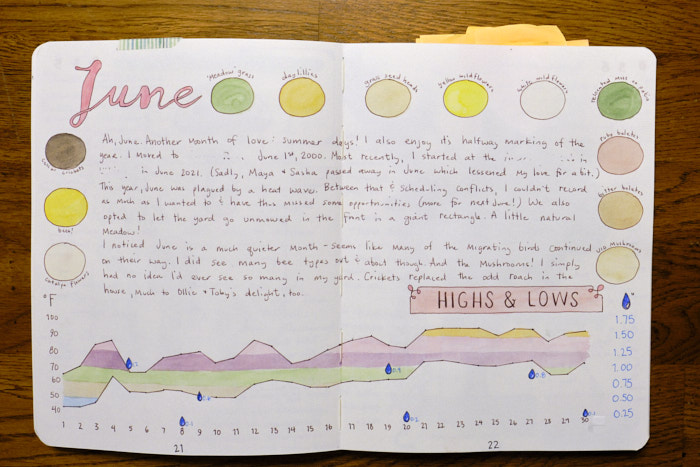 June
"Meadow" grass
daylillies
grass seed heads
yellow wildflowers
white wildflowers
Ah, June. Another month of love & summer days! I also enjoy it's halfway marking of the
year. I moved to June 1st, 2000. Most recently, I started at the
in June 2021. (Sadly, Maya & Sasha passed away in June which lessened my love for a bit.)
This year, June was plagued by a heat wave. Between that & scheduling conflicts, I couldn't record
as much as I wanted to & have thus missed some opportunities (more for next June!) We also
opted to let the yard go unmowed in the front in a giant rectangle. A little natural
Meadow!
I noticed June is a much quieter month - seems like many of the Migrating birds continued
on their way. I did see many bee types out & about though. And the Mushrooms! I simply
had no idea I'd ever see so many in my yard. Crickets replaced the odd roach in the
house, Much to Ollie & Toby's delight, too.
crickets
bees!
catalpa flowers
boletes
bitter boletes
Mushrooms
HIGHS & LOWS
°F
100
90
80
70
60
50
40
1.75
1.50
1.25
1.00
0.75
0.50
0.25
1 2 3 4 5 6 7 8 9 10 11 12 13 14 15 16 17 18 19 20 21 22 23 24 25 26 27 28 29 30
21
22